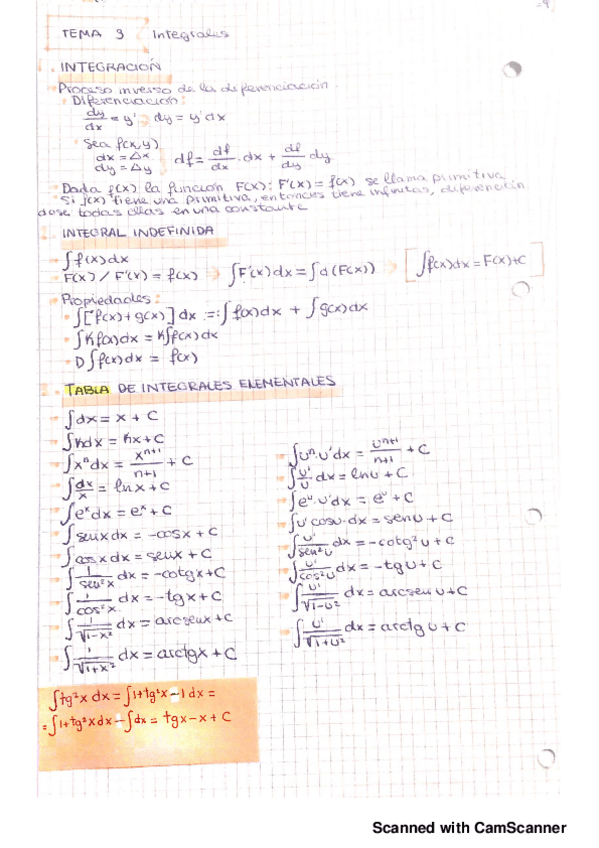 TEMA 3 Integrales
INTEGRACIÓN
Proceso inverso de la diferenciación.
Diferenciación:
dy/dx = y' dy = y'dx
Sea f(x,y)
dx = Δx
dy = Δy
df = df/dx · dx + df/dy dy
Dada f(x) la función F(x): F'(x) = f(x) se llama primitiva
Si f(x) tiene una primitiva, entonces tiene infinitas, diferencian
dose todas ellas en una constante
INTEGRAL INDEFINIDA
∫f(x)dx
F(x) / F'(x) = f(x) ⇒ ∫F'(x)dx = ∫d(F(x)) ⇒ [∫f(x)dx = F(x)+C]
Propiedades:
∫[f(x)+g(x)]dx = ∫f(x)dx + ∫g(x)dx
∫Kf(x)dx = K∫f(x)dx
D∫f(x)dx = f(x)
TABLA DE INTEGRALES ELEMENTALES
∫dx = x + C
∫Kdx = Kx+C
∫xⁿdx = xⁿ⁺¹/n+1 + C
∫dx/x = lnx + C
∫eˣdx = eˣ + C
∫senxdx = -cosx + C
∫cosxdx = senx + C
∫1/sen²x dx = -cotgx+C
∫1/cos²x dx = -tgx+C
∫1/√1-x² dx = arcsenx+C
∫1/√1+x² dx = arctgx + C
∫uⁿ·u'dx = uⁿ⁺¹/n+1 + C
∫u'/u dx = lnu + C
∫eᵘ·u'dx = eᵘ + C
∫u'cosu·dx = senu + C
∫u'/sen²u dx = -cotg²u + C
∫u'/cos²u dx = -tgu + C
∫u'/√1-u² dx = arcsenu+C
∫u'/√1+u² dx = arctgu + C
∫tg²x dx = ∫1+tg²x-1dx =
= ∫1+tg²xdx - ∫dx = tgx-x + C
Scanned with CamScanner